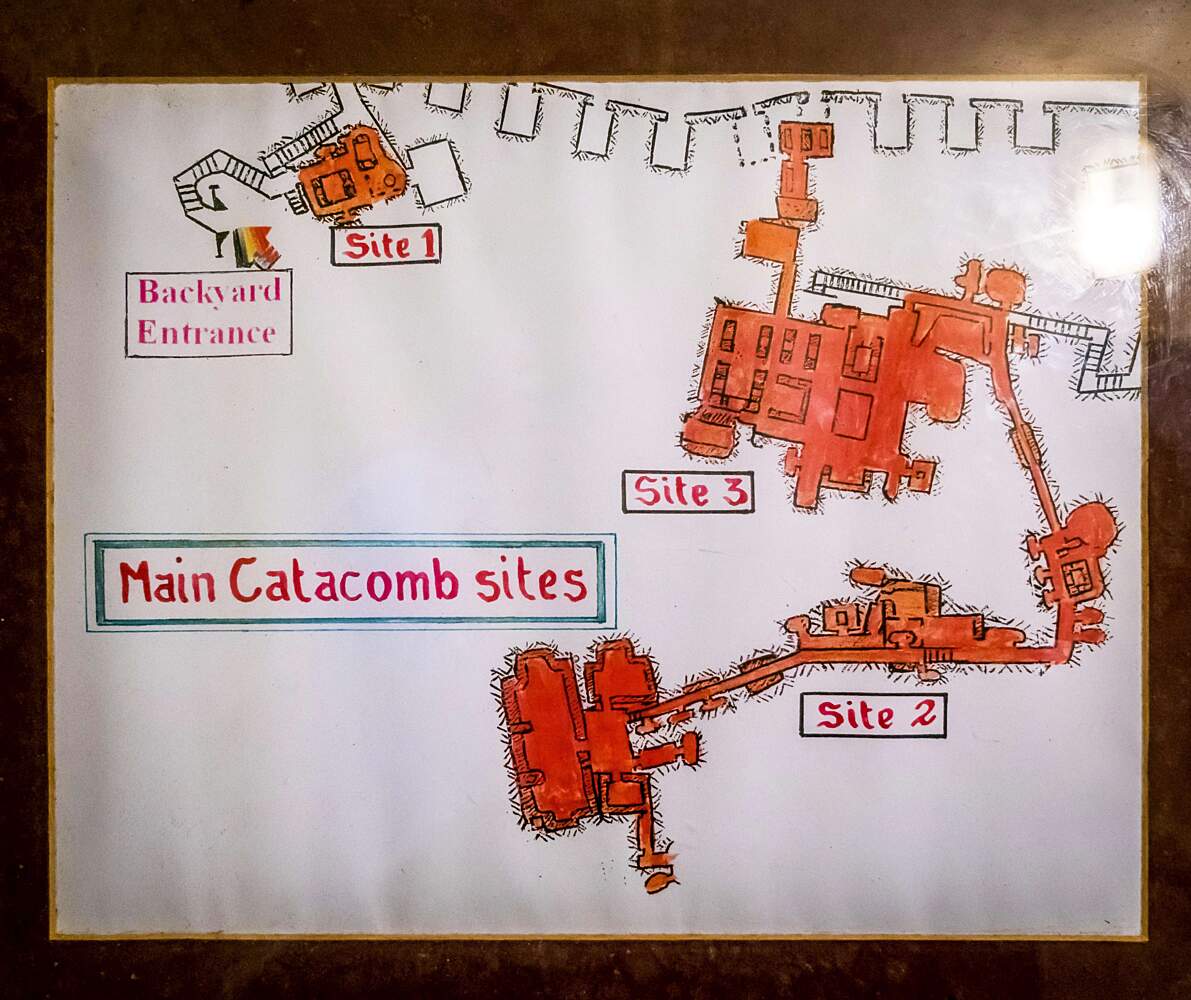 Site 1
Backyard
Entrance
Site 3
Main Catacomb sites
Site 2